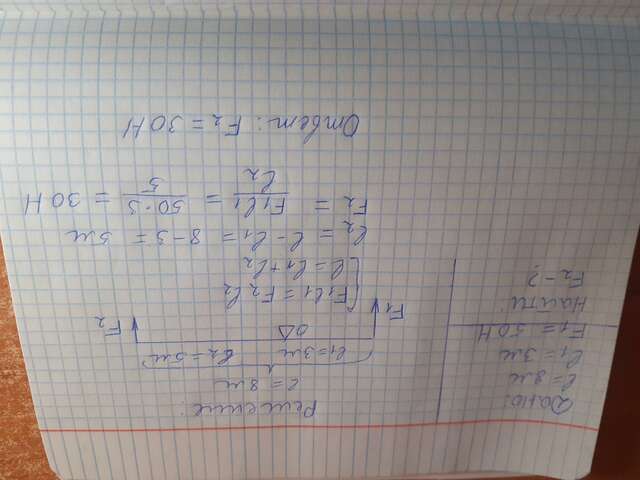 Дано:
l = 8 м
l₁ = 3 м
F₁ = 50 Н
Найти
F₂ - ?
Решение:
l = 8 м
l₁ = 3 м l₂ = 5 м
O
F₁ F₂
F₁l₁ = F₂l₂
l = l₁ + l₂
l₂ = l - l₁ = 8 - 3 = 5 м
F₂ = F₁l₁ / l₂ = 50·3 / 5 = 30 Н
Ответ: F₂ = 30 Н